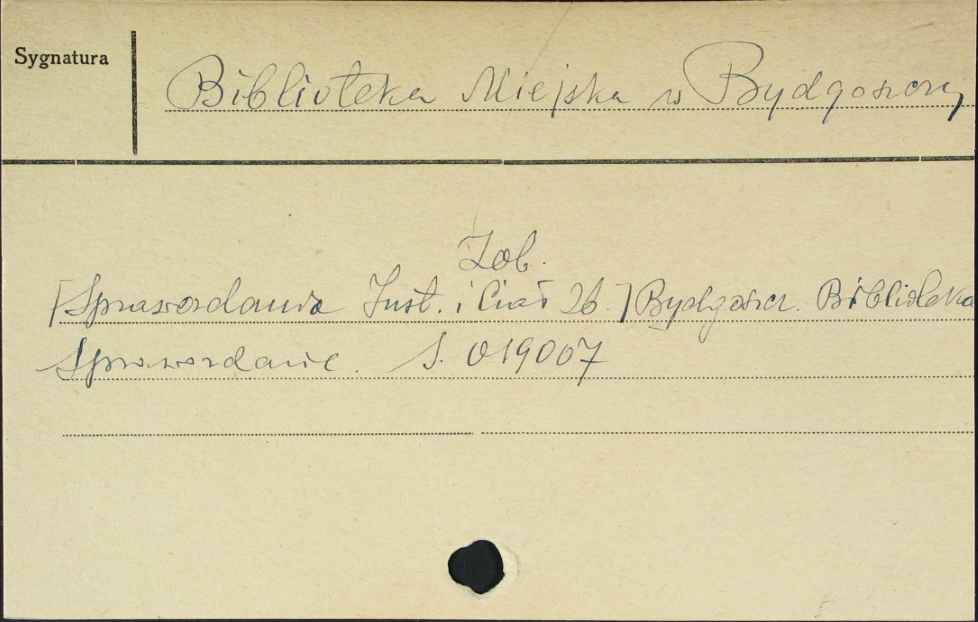 Sygnatura
Biblioteka Miejska w Bydgoszczy
Zob.
[Sprawozdania Inst. i Ciał 26.] Bydgoszcz. Biblioteka
Sprawozdanie. S. 019007